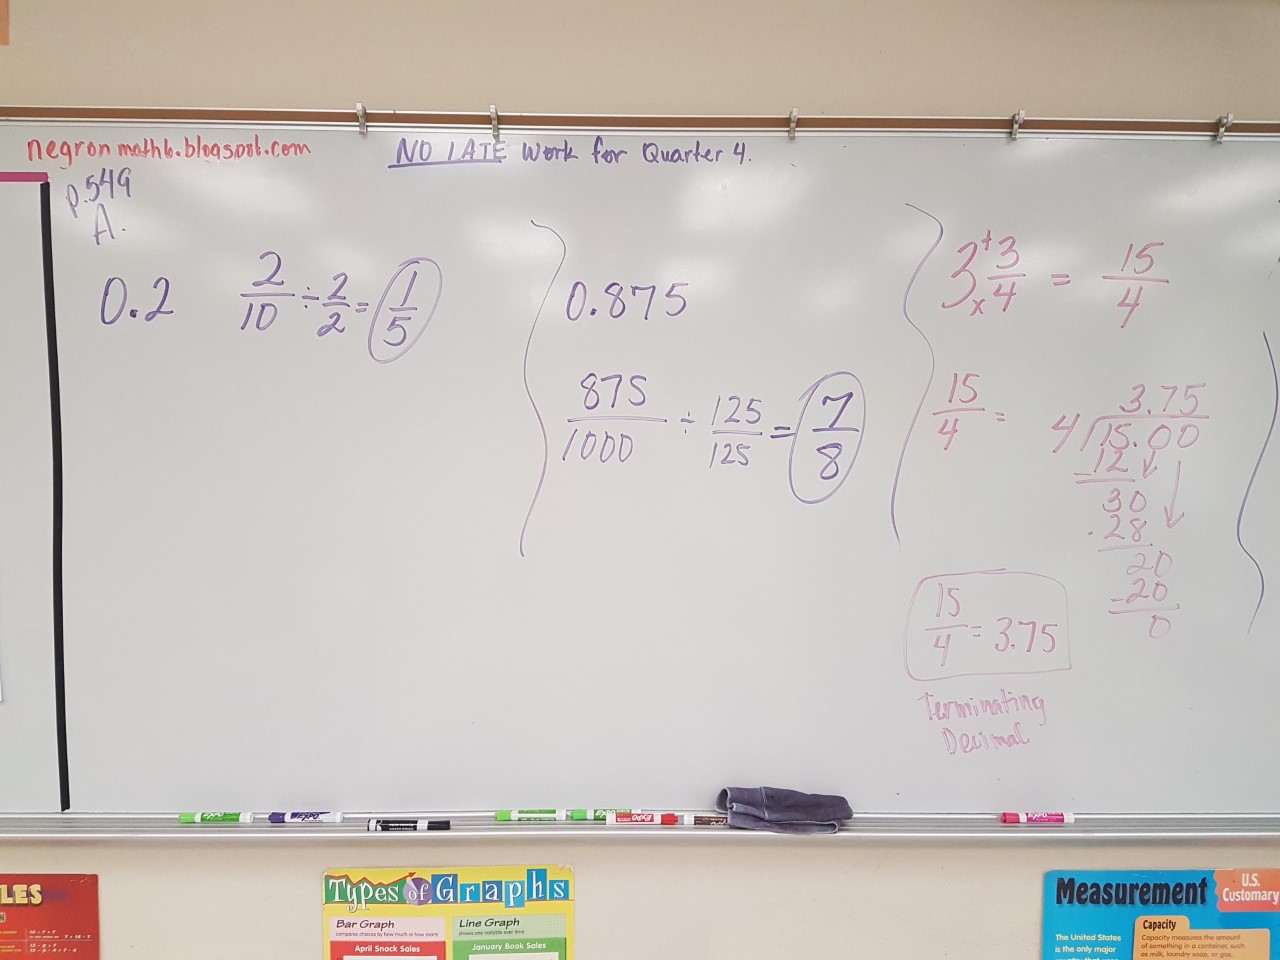 negronmath6.blogspot.com
NO LATE Work for Quarter 4.
p.549
A.
0.2 2/10 ÷ 2/2 = 1/5
0.875
875/1000 ÷ 125/125 = 7/8
3 + 3/x4 = 15/4
15/4 =
3.75
4 15.00
-12
30
-28
20
-20
0
15/4 = 3.75
Terminating
Decimal
EXPO
EXPO
EXPO
EXPO
LES
Types of Graphs
Bar Graph
compares choices by how much or how many
April Snack Sales
Line Graph
shows one variable over time
January Book Sales
Measurement
U.S.
Customary
The United States
is the only major
Capacity
Capacity measures the amount
of something in a container, such
as milk, laundry soap, or gas.